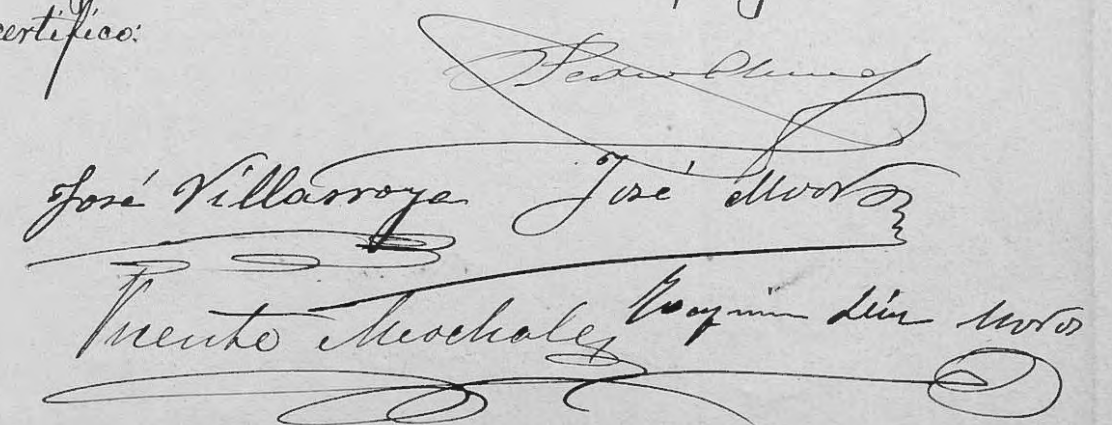 certifico:
Pedro
José Villarroya José Moros
Vicente Mochales Joaquin León Moros